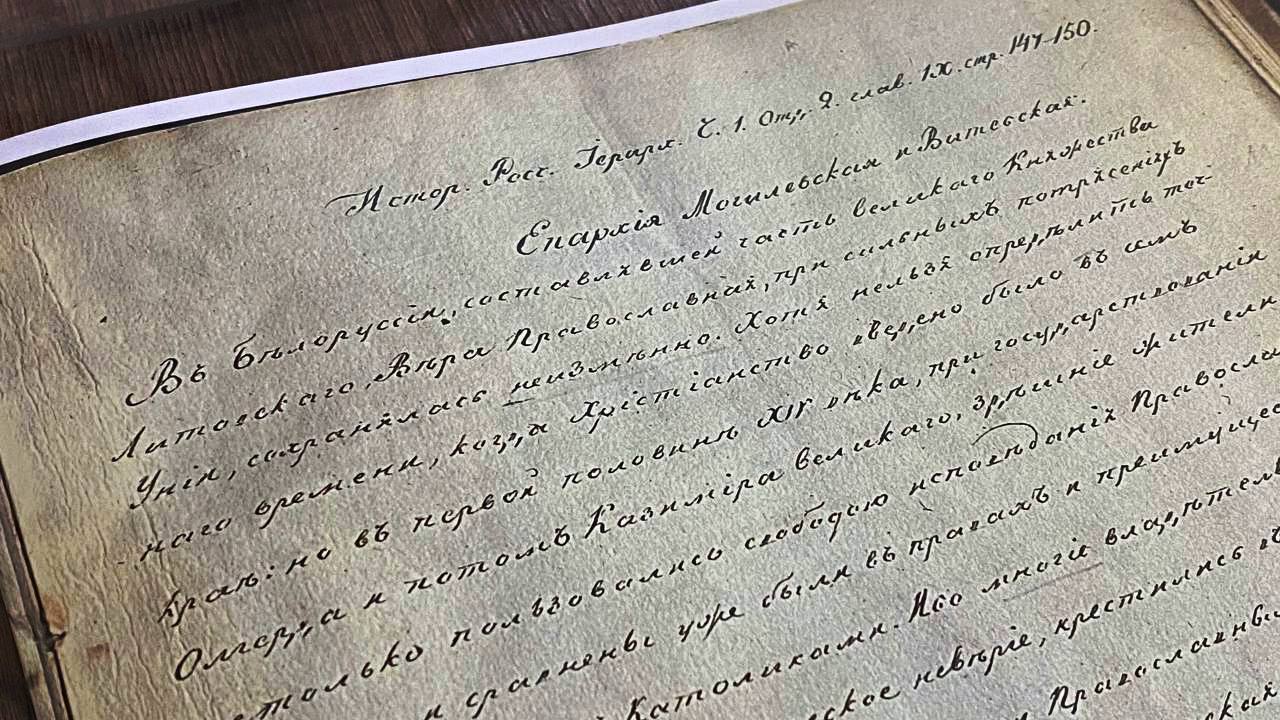 Истор. Росс. Іерарх. Ч. 1. Отд. 2. глав. IX. стр. 147-150.
Епархія Могилевская и Витебская.
Въ Бѣлоруссіи, составлявшей часть великаго Княжества
Литовскаго, Вѣра Православная, при сильныхъ потрясеніяхъ
Уніи, сохранялась неизмѣнно. Хотя нельзя опредѣлить точ-
наго времени, когда Христіанство введено было въ семъ
краѣ: но въ первой половинѣ XIV вѣка, при государствованіи
Олгерда и потомъ Казиміра великаго, здѣшніе жители
столько пользовались свободою исповѣданія Правосла
и сравнены уже были въ правахъ и преимущес
Католиками. Ибо многіе владѣтель
ское невѣріе, крестились въ
Православны
ская